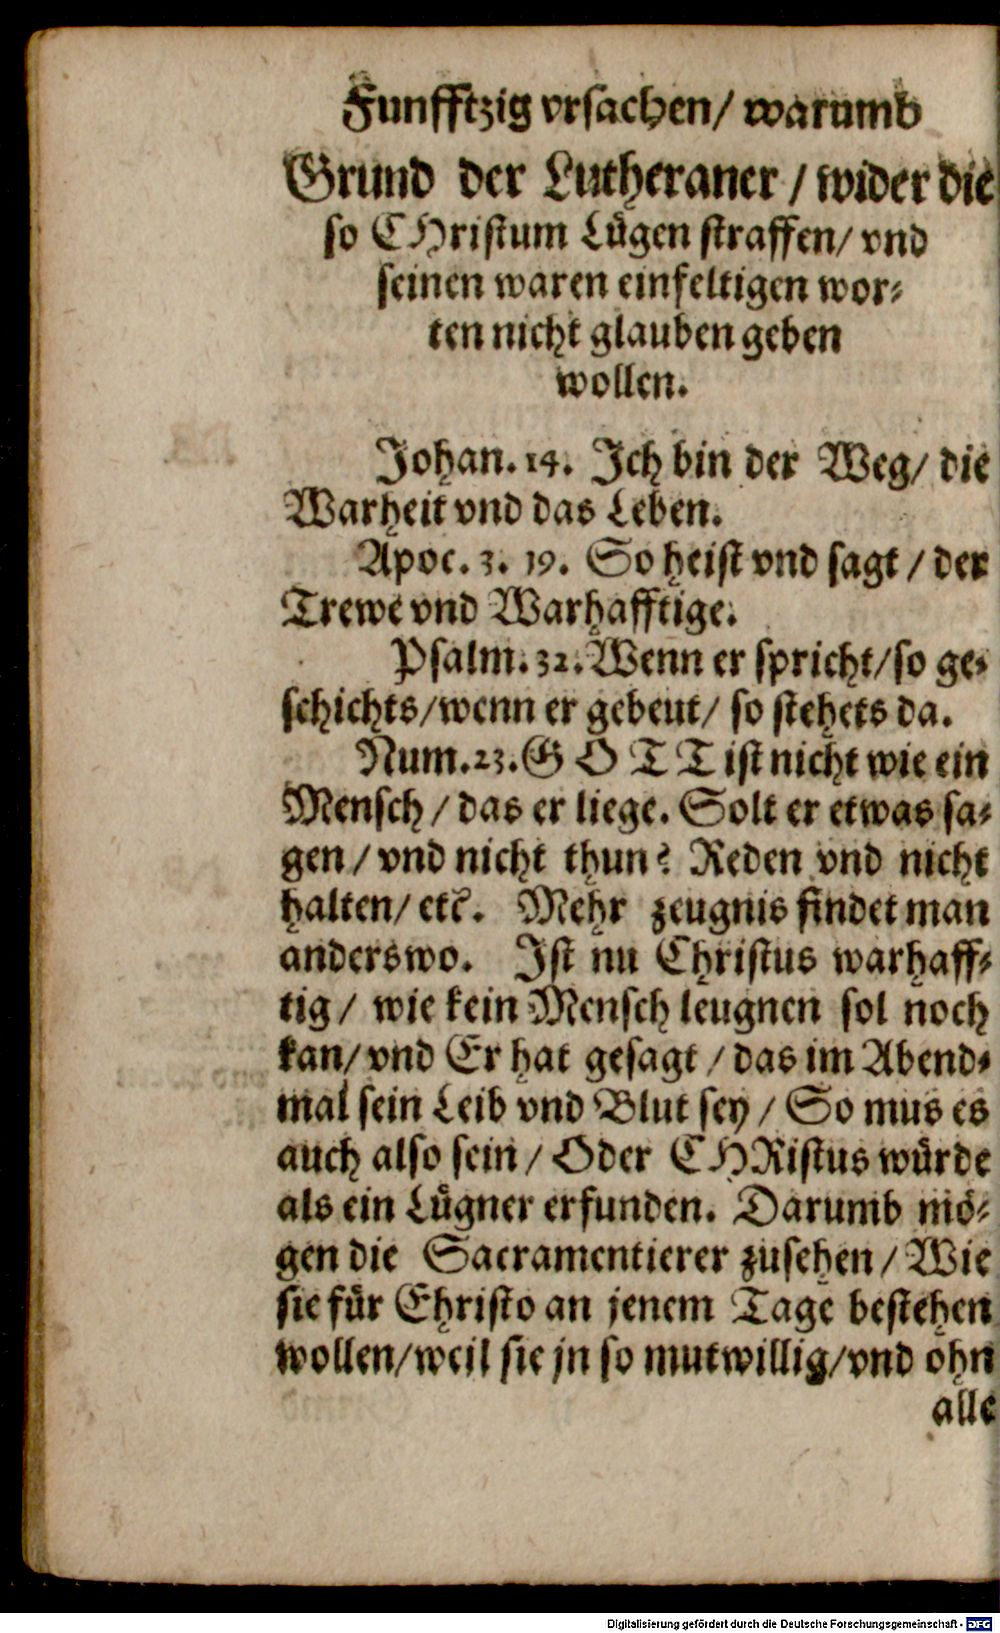 Funfftzig vrsachen/ warumb
Grund der Lutheraner / wider die
so CHristum Lügen straffen/ vnd
seinen waren einfeltigen wor⸗
ten nicht glauben geben
wollen.
Johan. 14. Ich bin der Weg/ die
Warheit vnd das Leben.
Apoc. 3. 19. So heist vnd sagt / der
Trewe vnd Warhafftige.
Psalm. 32. Wenn er spricht/so ge⸗
schichts/wenn er gebeut/ so stehets da.
Num. 23. G O T T ist nicht wie ein
Mensch / das er liege. Solt er etwas sa⸗
gen / vnd nicht thun? Reden vnd nicht
halten/ etc. Mehr zeugnis findet man
anderswo. Ist nu Christus warhaff⸗
tig / wie kein Mensch leugnen sol noch
kan/ vnd Er hat gesagt / das im Abend⸗
mal sein Leib vnd Blut sey / So mus es
auch also sein / Oder CHRistus würde
als ein Lügner erfunden. Darumb mö⸗
gen die Sacramentierer zusehen / Wie
sie für Christo an jenem Tage bestehen
wollen/weil sie jn so mutwillig/vnd ohn
alle
Digitalisierung gefördert durch die Deutsche Forschungsgemeinschaft - DFG